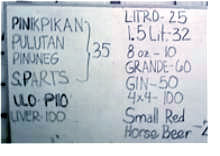 PINIKPIKAN
PULUTAN
PINUNEG
S.PARTS
35
ULO - P110
LIVER - 100
LITRO - 25
1.5 Lit. - 32
8 oz - 10
GRANDE - 60
GIN - 50
4x4 - 100
Small Red
Horse Beer